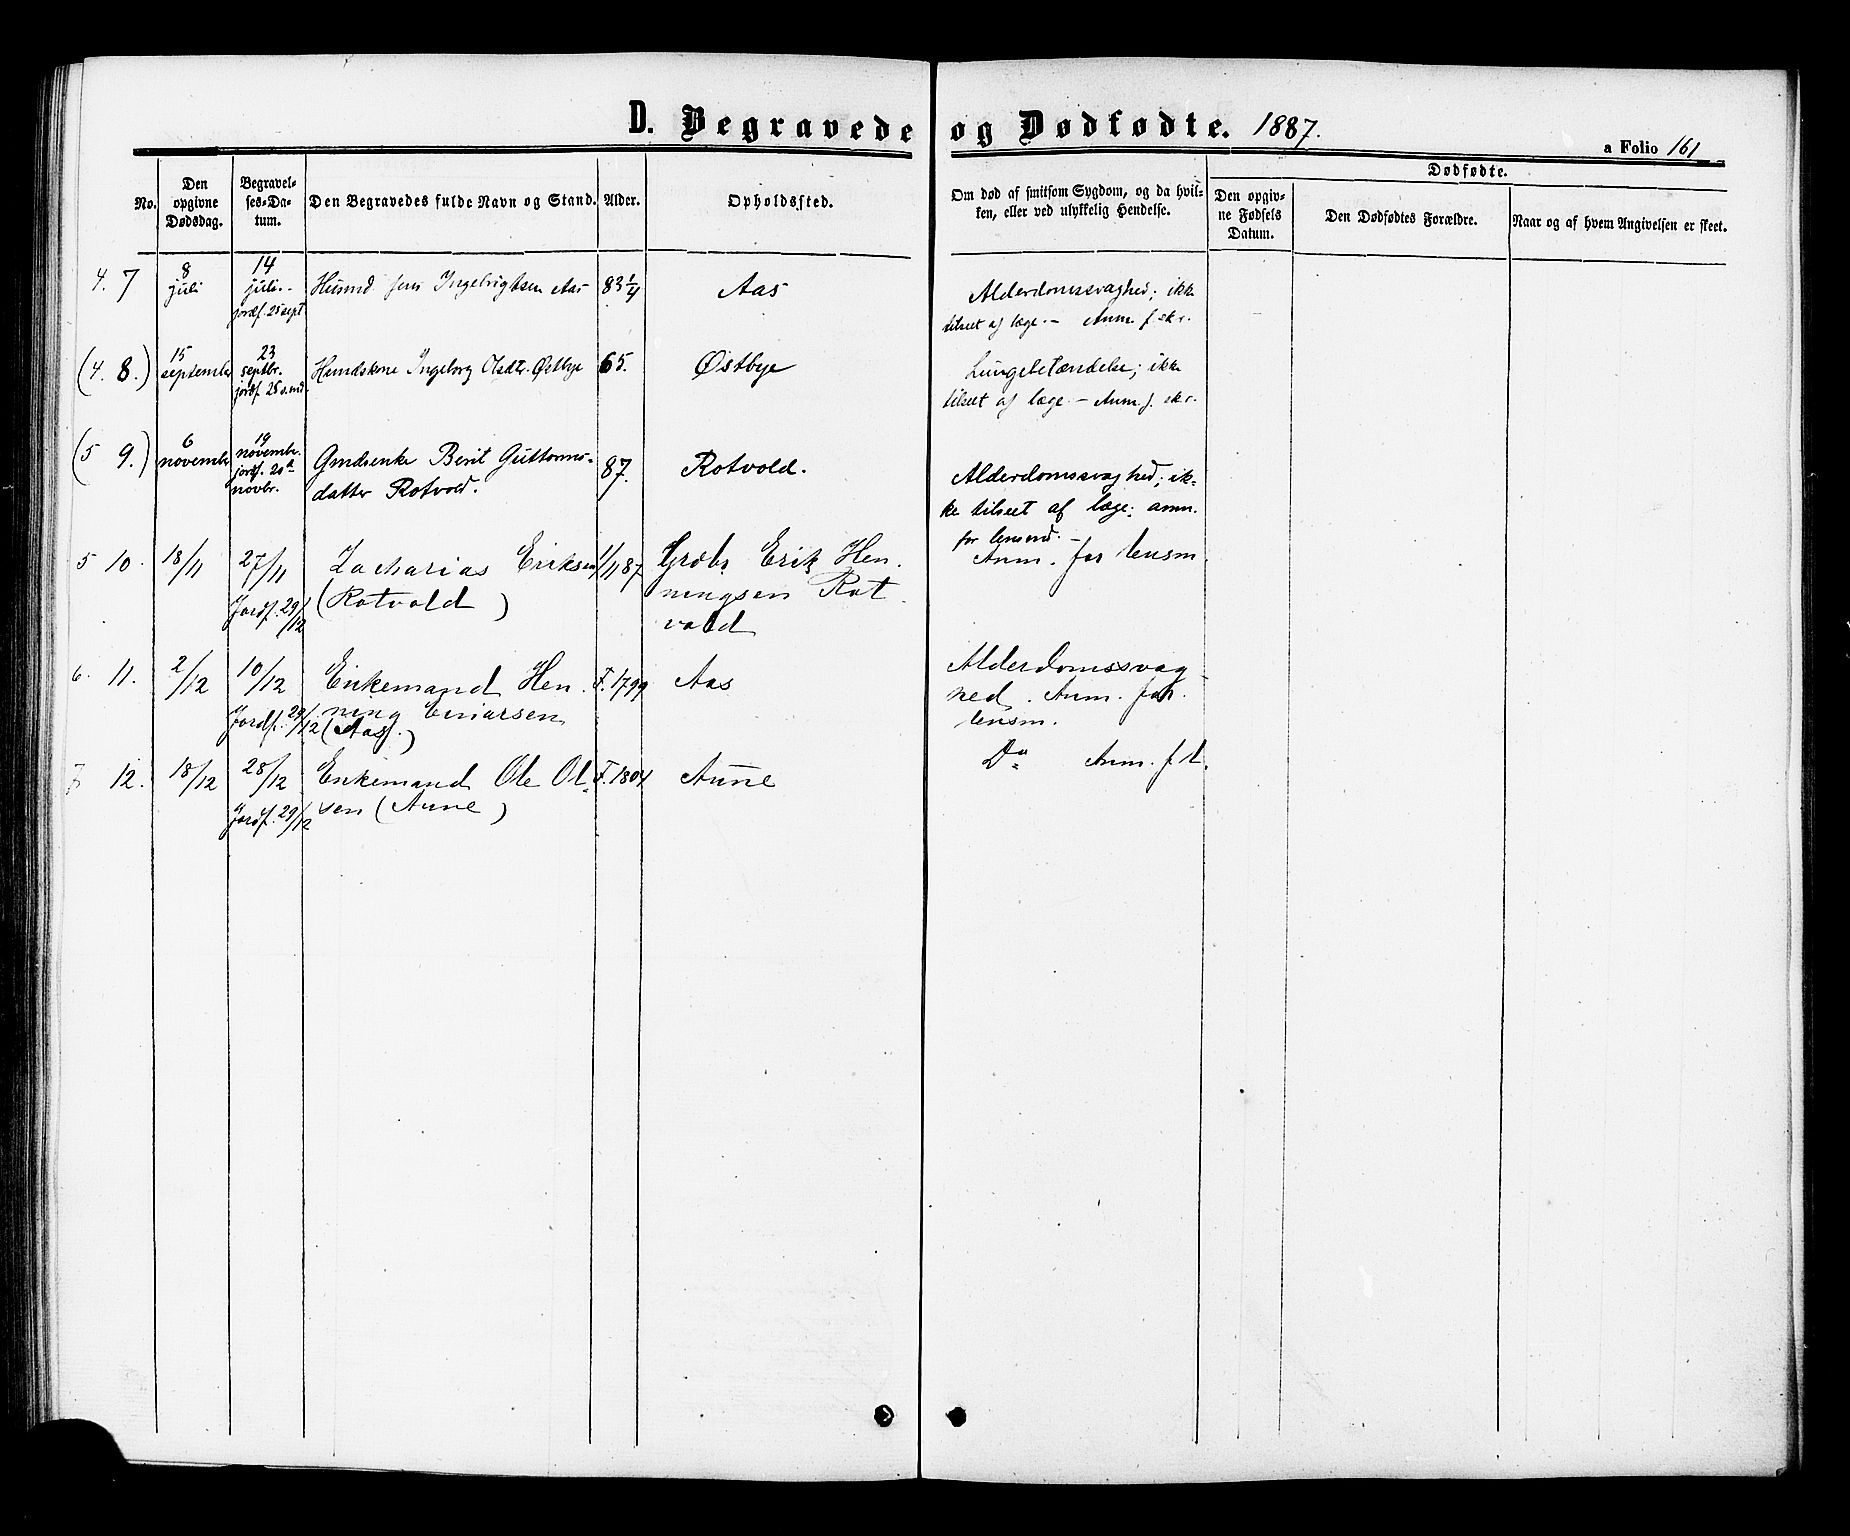 D. Begravede og Dødfødte. 1887.
a Folio 161
No.
Den opgivne Dødsdag.
Begravel-
ses-Da-
tum.
Den Begravedes fulde Navn og Stand.
Alder.
Opholdssted.
Om død af smitsom Sygdom, og da hvil-
ken, eller ved ulykkelig Hendelse.
Dødfødte.
Den opgiv-
ne Fødsels
Datum.
Den Dødfødtes Forældre.
Naar og af hvem Angivelsen er skeet.
4. 7
8
juli
14
juli.-
jordf. 25 sept
Husmd Jens Ingebrigtsen Aas
83 1/4
Aas
Alderdomssvaghed; ikke
tilseet af læge. - Anm. f. skr.
(4. 8.)
15
september
23
septbr.
jordf. 25 s.md.
Husmdskone Ingeborg Olsdtr. Østbye
65.
Østbye
Lungebetændelse; ikke
tilseet af læge. - Anm. f. skr.
(5 9.)
6
november
19
novembr.
jordf. 20de
novbr.
Gmdsenke Berit Guttorms-
datter Rotvold.
87.
Rotvold.
Alderdomssvaghed; ik-
ke tilseet af læge; anm.
for lensmd. -
5 10.
18/11
27/11
Jordf. 29/12
Zacharias Eriksen
(Rotvold)
1/11 87
Grdbr Erik Hen-
ningsen Rot-
vold
Anm. for lensm.
6. 11.
2/12
10/12
Jordf. 29/12
Enkemand Hen-
ning Einarsen
(Aas.)
F. 1799
Aas
Alderdomssvag-
hed. Anm. for
lensm.
7 12.
18/12
28/12
Jordf. 29/12
Enkemand Ole Ol-
sen (Aune)
F. 1804
Aune
Do Anm. f. l.